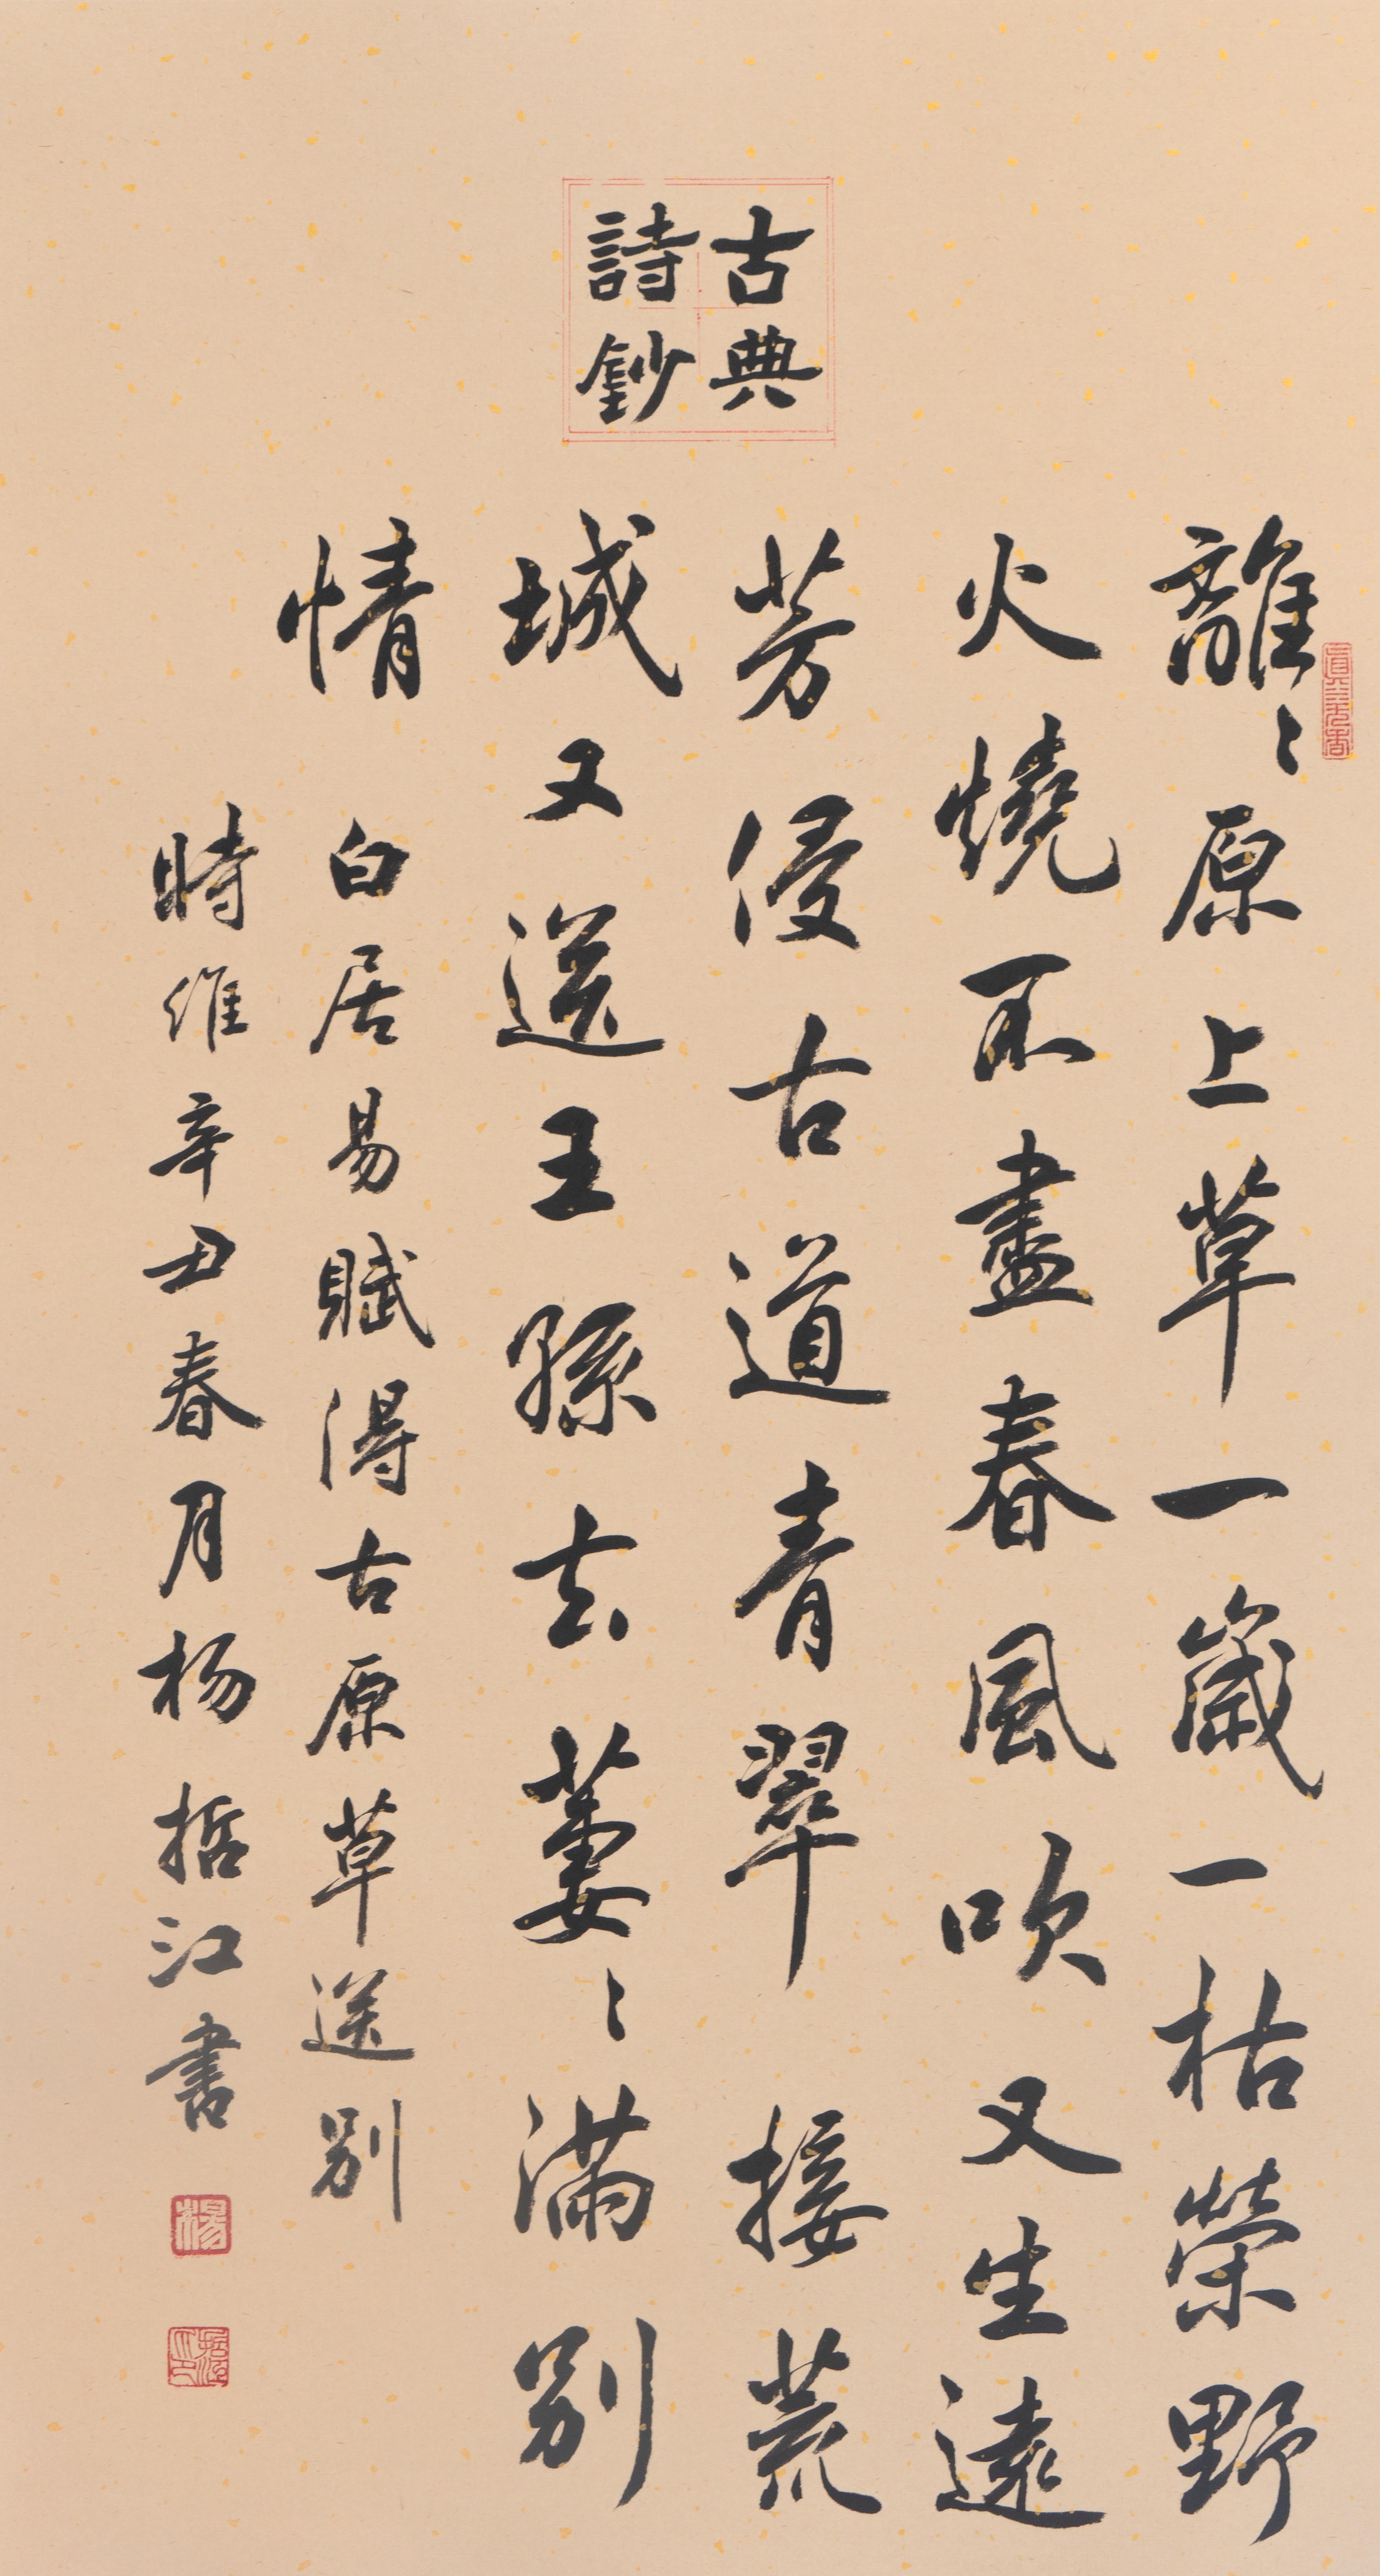 古典
詩鈔
離〻原上草一歲一枯榮野
火燒不盡春風吹又生遠
芳侵古道青翠接荒
城又送王孫去萋〻滿別
情
白居易賦得古原草送別
時維辛丑春月杨哲江書
楊